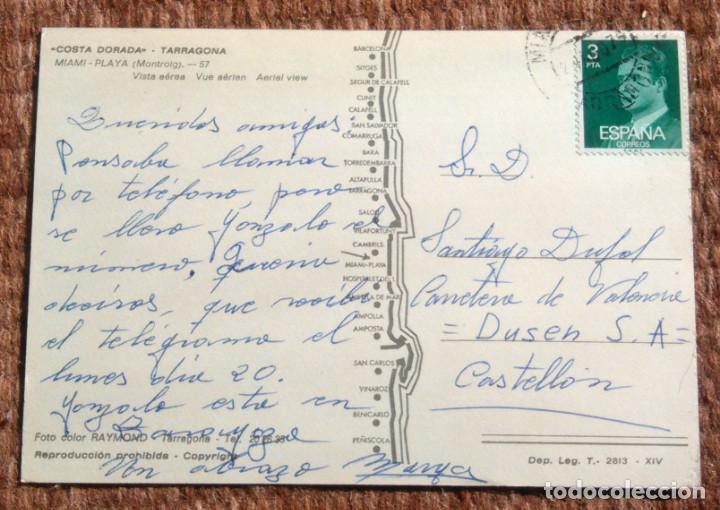 "COSTA DORADA" - TARRAGONA
MIAMI - PLAYA (Montroig). — 57
Vista aérea Vue aérien Aeriel view
Queridos amigos:
Pensaba llamar
por teléfono pero
se llevo Gonzalo el
número. Queria
deciros, que recibi
el telégrama el
lunes dia 20.
Gonzalo esta en
Un abrazo
Foto color RAYMOND - Tarragona - Tel.
Reproducción prohibida - Copyright
BARCELONA
SITGES
SEGUR DE CALAFELL
CUNIT
CALAFELL
SAN SALVADOR
COMARRUGA
BARA
TORREDEMBARRA
ALTAFULLA
TARRAGONA
SALOU
VILAFORTUNY
CAMBRILS
MIAMI-PLAYA
HOSPITALET DE L
DE MAR
AMPOLLA
AMPOSTA
SAN CARLOS
VINAROZ
BENICARLO
PEÑISCOLA
3
PTA
ESPAÑA
CORREOS
Sr. D.
Santiago
Carretera de Valencia
= Dusen S.A =
Castellón
Dep. Leg. T.- 2813 - XIV
todocoleccion.net